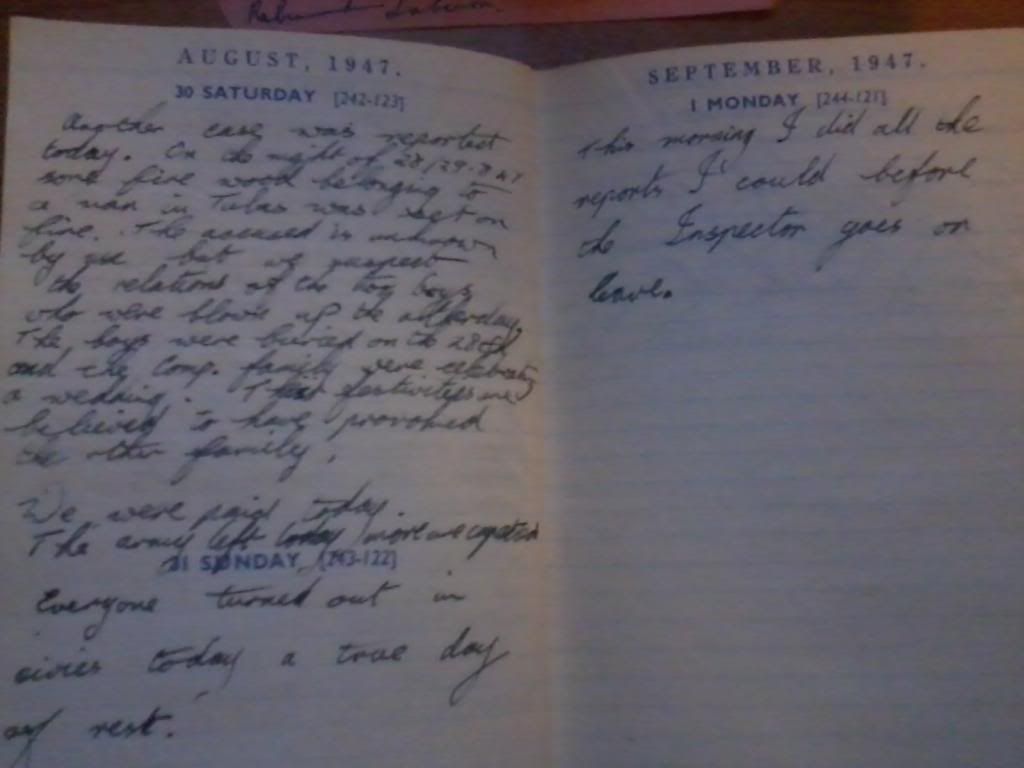 AUGUST, 1947.
30 SATURDAY [242-123]
Another case was reported
today. On the night of 28/29.8.47
some fire wood belonging to
a man in Tubas was set on
fire. The accused is unknown
by but we suspect
the relations of the two boys
who were blown up the other day.
The boys were buried on the 28th
and the Comp. family were celebrating
a wedding. festivities are
believed to have provoked
the other family.
We were paid today.
The army left today more are expected
31 SUNDAY [243-122]
Everyone turned out in
civies today a true day
of rest.
SEPTEMBER, 1947.
1 MONDAY [244-121]
This morning I did all the
reports I could before
the Inspector goes on
leave.